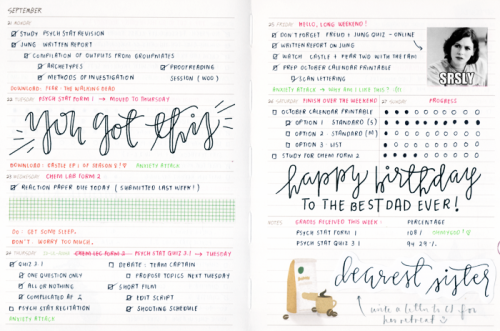 SEPTEMBER
21 MONDAY
STUDY PSYCH STAT REVISION
JUNG WRITTEN REPORT
COMPILATION OF OUTPUTS FROM GROUPMATES
ARCHETYPES
PROOFREADING
METHODS OF INVESTIGATION
SESSION (WOO)
DOWNLOAD: FEAR THE WALKING DEAD
22 TUESDAY PSYCH STAT FORM 1 → MOVED TO THURSDAY
you got this
DOWNLOAD: CASTLE EP 1 OF SEASON 8!
ANXIETY ATTACK
23 WEDNESDAY CHEM LAB FORM 2
REACTION PAPER DUE TODAY (SUBMITTED LAST WEEK!)
DO: GET SOME SLEEP.
DON'T: WORRY TOO MUCH.
24 THURSDAY CHEM LEC FORM 2 PSYCH STAT QUIZ 3.1 → TUESDAY
QUIZ 3.1
ONE QUESTION ONLY
ALL OR NOTHING
COMPLICATED AF
PSYCH STAT RECITATION
DEBATE: TEAM CAPTAIN
PROPOSE TOPICS NEXT TUESDAY
SHORT FILM
EDIT SCRIPT
SHOOTING SCHEDULE
ANXIETY ATTACK
25 FRIDAY HELLO, LONG WEEKEND!
DON'T FORGET FREUD & JUNG QUIZ - ONLINE
WRITTEN REPORT ON JUNG
WATCH CASTLE & FEAR TWD WITH THE FAM
PREP OCTOBER CALENDAR PRINTABLE
SCAN LETTERING
ANXIETY ATTACK → WHY AM I LIKE THIS?
SRSLY
26 SATURDAY FINISH OVER THE WEEKEND
OCTOBER CALENDAR PRINTABLE
OPTION 1 STANDARD (S)
OPTION 2 STANDARD (M)
OPTION 3 LIST
STUDY FOR CHEM FORM 2
27 SUNDAY PROGRESS
happy birthday
TO THE BEST DAD EVER!
NOTES GRADES RECEIVED THIS WEEK:
PERCENTAGE
PSYCH STAT FORM 1
PSYCH STAT QUIZ 3.1
dearest sister
write a letter to
for
her retreat